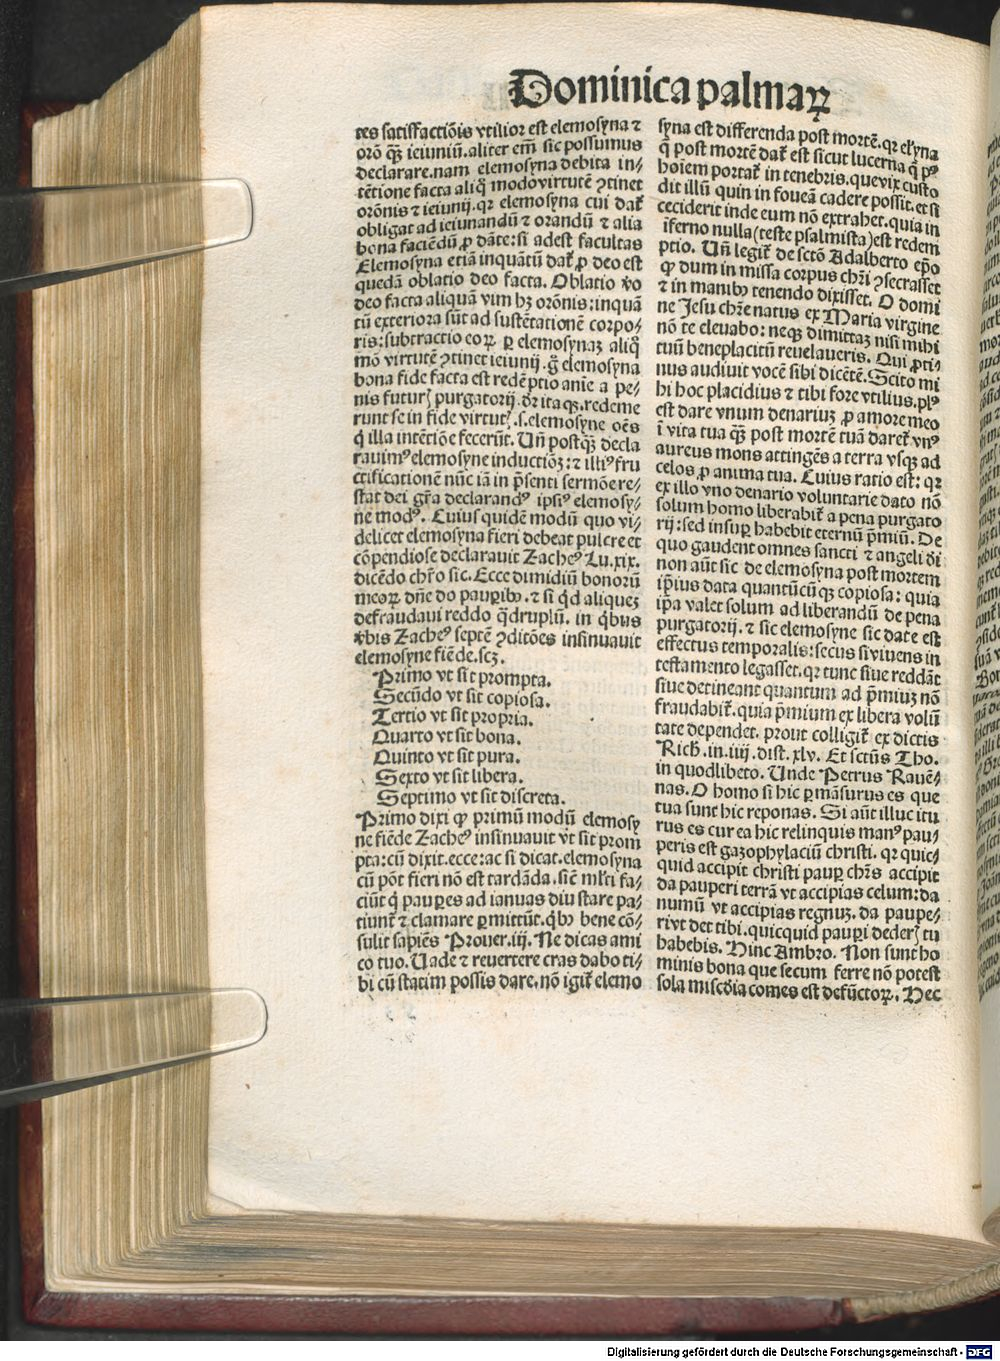 Dominica palmaꝝ
tes satiſfactiōis vtilior est elemosyna ⁊
orō qȝ̄ ieiuniū. aliter em̄ sic possumus
declarare. nam elemosyna debita in⸗
tētione facta aliq̄ modo virtutē ꝯtinet
orōnis ⁊ ieiunij. qꝛ elemosyna cui dat̄
obligat ad ieiunandū ⁊ orandū ⁊ alia
bona faciēdū ꝓ dāte: si adest facultas
Elemosyna etiā inquātū dat̄ ꝓ deo est
quedā oblatio deo facta. Oblatio v̄o
deo facta aliquā vim hȝ orōnis: inquā
tū exteriora sūt ad sustētationē corpo⸗
ris: subtractio eoꝝ ꝑ elemosynaȝ aliq̄
mō virtutē ꝯtinet ieiunij. g̊ elemosyna
bona fide facta est redēptio anīe a pe⸗
nis futurꝭ purgatorij. dꝛ itaqȝ. redeme
runt se in fide virtutꝭ .s. elemosyne oēs
q̇ illa intētiōe fecerūt. Uñ postqȝ̄ decla
rauimꝰ elemosyne inductiōȝ: ⁊ illiꝰ fru
ctificationē nūc iā in p̄senti sermōe re⸗
stat dei gr̄a declarandꝰ ipsiꝰ elemosy⸗
ne modꝰ. Cuius quidē modū quo vi⸗
delicet elemosyna fieri debeat pulcre et
cōpendiose declarauit Zacheꝰ Lu. xix.
dicēdo chr̄o sic. Ecce dimidiū bonorū
meoꝝ dn̄e do pauꝑibꝰ. ⁊ si q̇d aliqueȝ
defraudaui reddo q̇druplū. in q̇bus
v̄bis Zacheꝰ septē ꝯditōes insinuauit
elemosyne fiēde. scȝ.
Primo vt sit prompta.
Secūdo vt sit copiosa.
Tertio vt sit propria.
Quarto vt sit bona.
Quinto vt sit pura.
Sexto vt sit libera.
Septimo vt sit discreta.
Primo dixi ꝙ primū modū elemosy
ne fiēde Zacheꝰ insinuauit vt sit prom
pta: cū dixit. ecce: ac si dicat. elemosyna
cū pōt fieri nō est tardāda. sic̄ ml̓ti fa⸗
ciūt q̇ pauꝑes ad ianuas diu stare pa⸗
tiunt̄ ⁊ clamare ꝑmittūt. q̇bꝰ bene cō⸗
sulit sapiēs Prouer. iij. Ne dicas ami
co tuo. Uade ⁊ reuertere cras dabo ti⸗
bi cū statim possis dare. nō igit̄ elemo
syna est differenda post mortē. qꝛ el̓yna
q̄ post mortē dat̄ est sicut lucerna q̄ pꝰ
hoīem portat̄ in tenebris. que vix custo
dit illū quin in foueā cadere possit. et si
ceciderit inde eum nō extrahet. quia in
īferno nulla (teste psalmista) est redem
ptio. Uñ legit̄ de sctō Adalberto ep̄o
ꝙ dum in missa corpus chr̄i ꝯsecrasset
⁊ in manibꝰ tenendo dixisset. O domi
ne Jesu chr̄e natus ex Maria virgine
nō te eleuabo: neqȝ dimittaȝ nisi mihi
tuū beneplacitū reuelaueris. Qui ꝓti⸗
nus audiuit vocē sibi dicētē. Scito mi
hi hoc placidius ⁊ tibi fore vtilius. plꝰ
est dare vnum denariuȝ ꝓ amore meo
ī vita tua qȝ̄ post mortē tuā daret̄ vnꝰ
aureus mons attingēs a terra vsqȝ ad
celos ꝓ anima tua. Cuius ratio est: qꝛ
ex illo vno denario voluntarie dato nō
solum homo liberabit̄ a pena purgato
rij: sed insuꝑ habebit eternū p̄miū. De
quo gaudent omnes sancti ⁊ angeli di
non aūt sic de elemosyna post mortem
ip̄ius data quantūcūqȝ copiosa: quia
ip̄a valet solum ad liberandū de pena
purgatorij. ⁊ sic elemosyne sic date est
effectus temporalis: secus si viuens in
testamento legasset. qꝛ tunc siue reddāt
siue detineant quantum ad p̄miuȝ nō
fraudabit̄. quia p̄mium ex libera volū
tate dependet. prout colligit̄ ex dictis
Rich. in. iiij. dist. xlv. Et sctūs Tho.
in quodlibeto. Unde Petrus Rauē⸗
nas. O homo si hic ꝑmāsurus es que
tua sunt hic reponas. Si aūt illuc itu
rus es cur ea hic relinquis manꝰ pau⸗
peris est gazophylaciū christi. qꝛ quic⸗
quid accipit christi pauꝑ chr̄s accipit
da pauperi terrā vt accipias celum: da
numū vt accipias regnuȝ. da paupe⸗
ri vt det tibi. quicquid pauꝑi dederꝭ tu
habebis. Hinc Ambro. Non sunt ho
minis bona que secum ferre nō potest
sola misc̄dia comes est defūctoꝝ. Hec
Digitalisierung gefördert durch die Deutsche Forschungsgemeinschaft - DFG